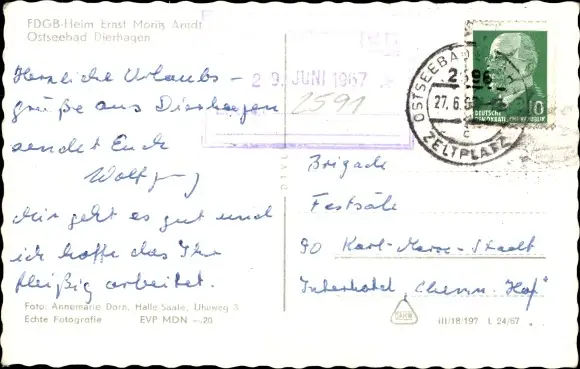 FDGB-Heim Ernst Moritz Arndt
Ostseebad Dierhagen
Herzliche Urlaubs-
grüße aus Dierhagen
sendet Euch
Wolfgang
Mir geht es gut und
ich hoffe das Ihr
fleißig arbeitet.
Foto: Annemarie Dorn, Halle-Saale, Uhuweg 5
Echte Fotografie EVP MDN -.20
29. JUNI 1967
2591
OSTSEEBAD
2596
27.6.
ZELTPLATZ
c
10
DEUTSCHE
DEMOKRATISCHE REPUBLIK
Brigade
Festsäle
90 Karl-Marx-Stadt
Interhotel "Chemn. Hof"
III/18/197 L 24/67